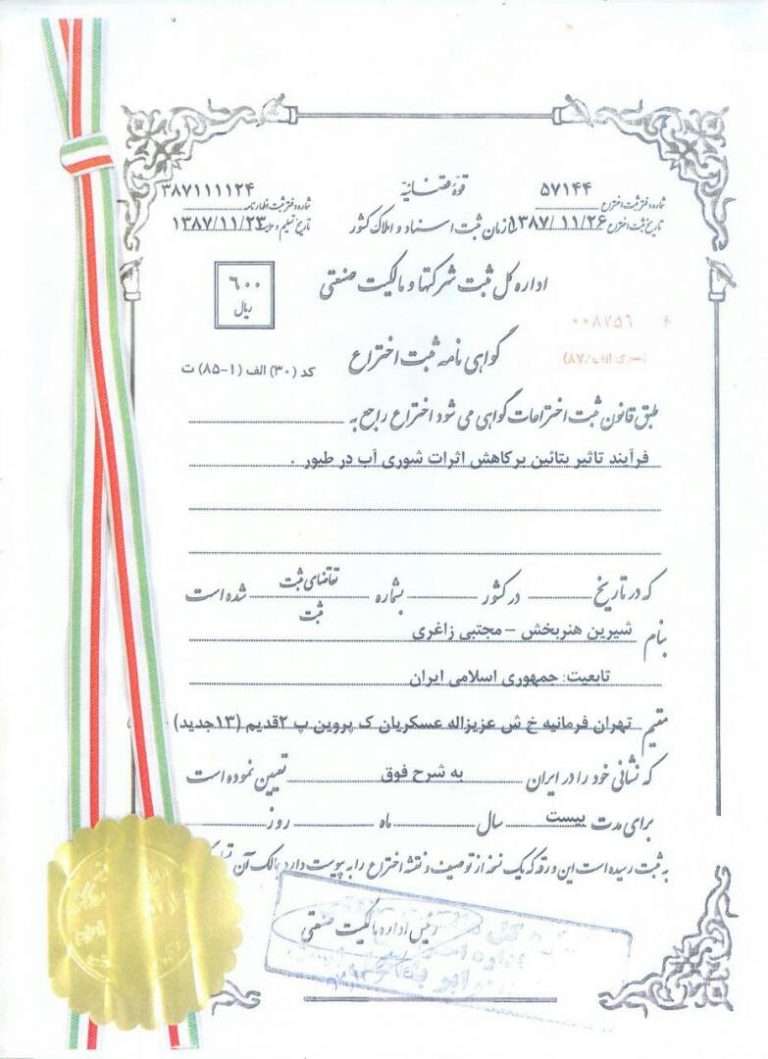 قوه قضائیه
۵۷۱۴۴
شماره دفتر ثبت اختراع
تاریخ ثبت اختراع ۱۳۸۷/۱۱/۲۶
سازمان ثبت اسناد و املاک کشور
۳۸۷۱۱۱۱۲۴
شماره دفتر ثبت اظهارنامه
تاریخ تسلیم ۱۳۸۷/۱۱/۲۳
اداره کل ثبت شرکتها و مالکیت صنعتی
۶۰۰
ریال
۰۰۸۷۵۶
(سری الف/۸۷)
گواهی نامه ثبت اختراع
کد (۳۰) الف (۱-۸۵) ت
طبق قانون ثبت اختراعات گواهی می شود اختراع راجع به
فرآیند تاثیر بتائین برکاهش اثرات شوری آب در طیور .
که در تاریخ در کشور بشماره تقاضای ثبت شده است
ثبت
بنام شیرین هنربخش – مجتبی زاغری
تابعیت: جمهوری اسلامی ایران
مقیم تهران فرمانیه خ ش عزیزاله عسکریان ک پروین پ ۲قدیم (۱۳جدید)
که نشانی خود را در ایران به شرح فوق تعیین نموده است
برای مدت بیست سال ماه روز
به ثبت رسیده است این ورقه که یک نسخه از توصیف و نقشه اختراع را به پیوست دارد بمالک آن
رئیس اداره مالکیت صنعتی